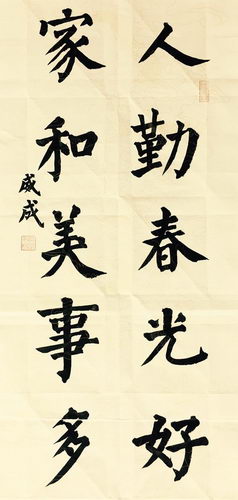 人勤春光好
家和美事多
威成